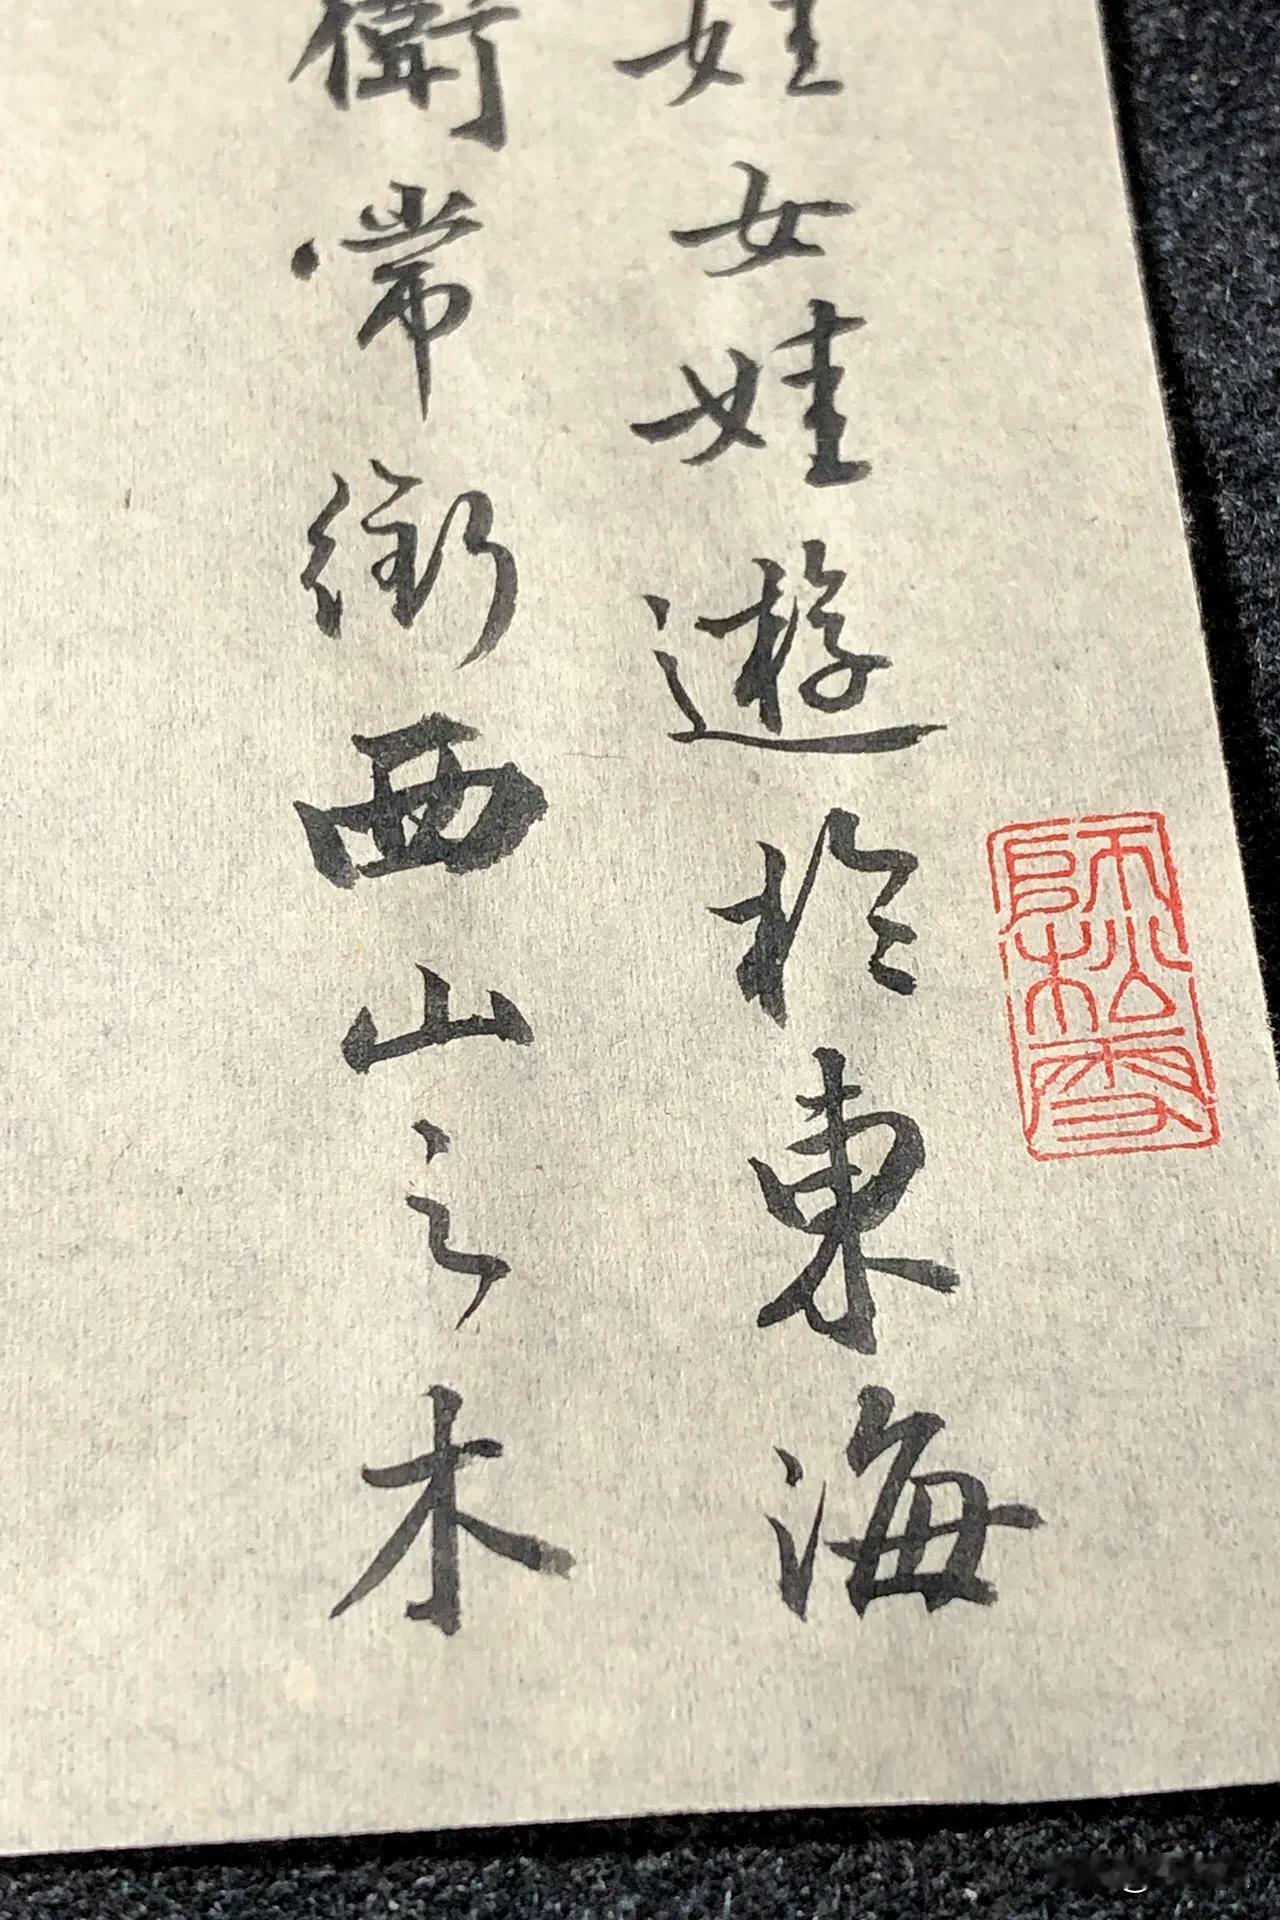 娃女娃遊於東海
衛常銜西山之木
師松雪